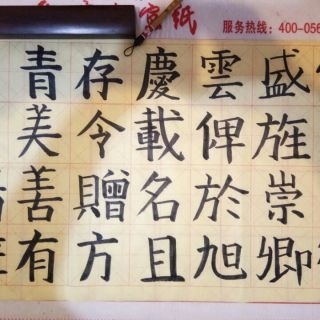 宣纸
服务热线：400-056
盛旌崇卿
雲俾於旭
慶載名且
存令贈方
青美善有